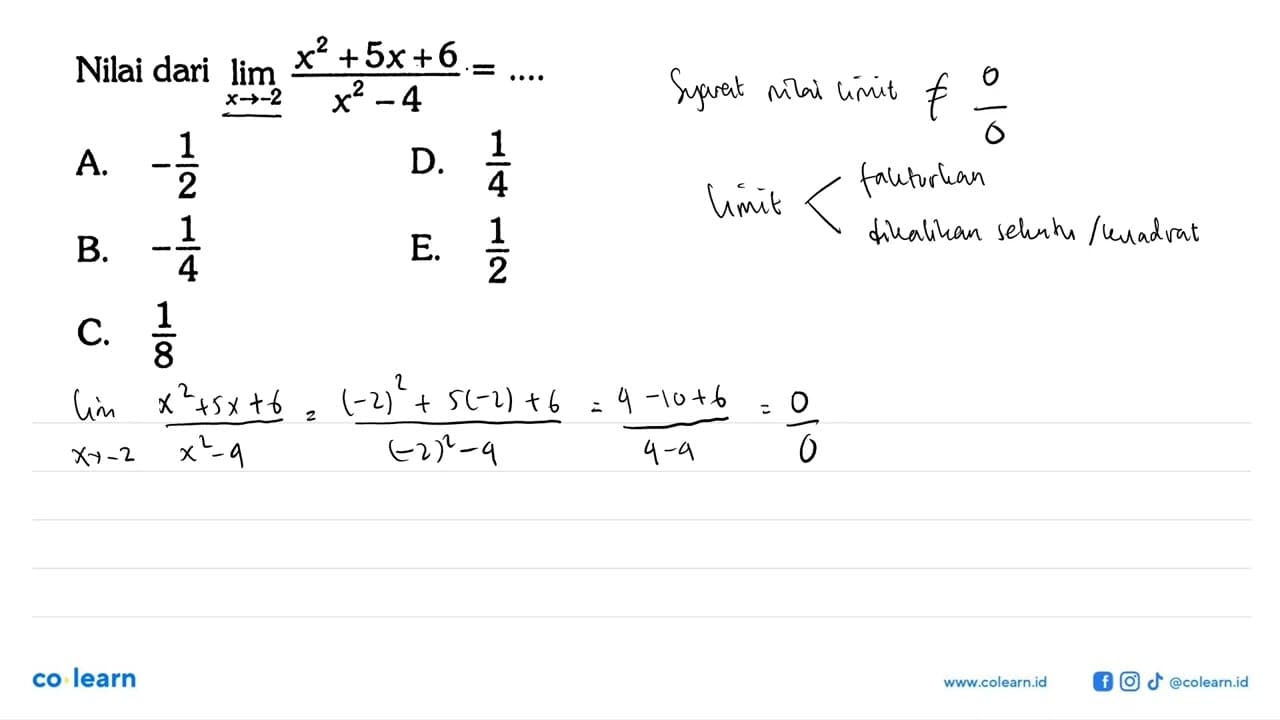 Nilai dari lim x→-2 (x² + 5x + 6)/(x² - 4) = ....
A. -1/2
B. -1/4
C. 1/8
D. 1/4
E. 1/2
Syarat nilai limit ≠ 0/0
limit < faktorkan
dikalikan sekutu / kuadrat
lim x→-2 (x² + 5x + 6)/(x² - 4) = ((-2)² + 5(-2) + 6)/((-2)² - 4) = (4 - 10 + 6)/(4 - 4) = 0/0
co learn
www.colearn.id @colearn.id